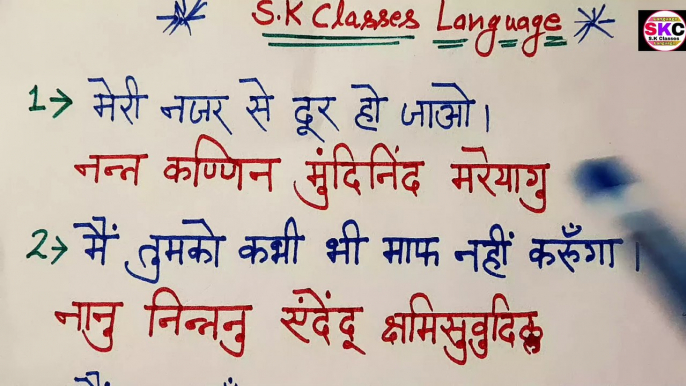 S.K Classes Language
SKC
S.K Classes
1→ मेरी नजर से दूर हो जाओ।
नन्न कण्णिन मुंदिनिंद मरेयागु
2→ मैं तुमको कभी भी माफ नहीं करूँगा।
नानु निन्ननु एंदेंदू क्षमिसुवुदिल्ल